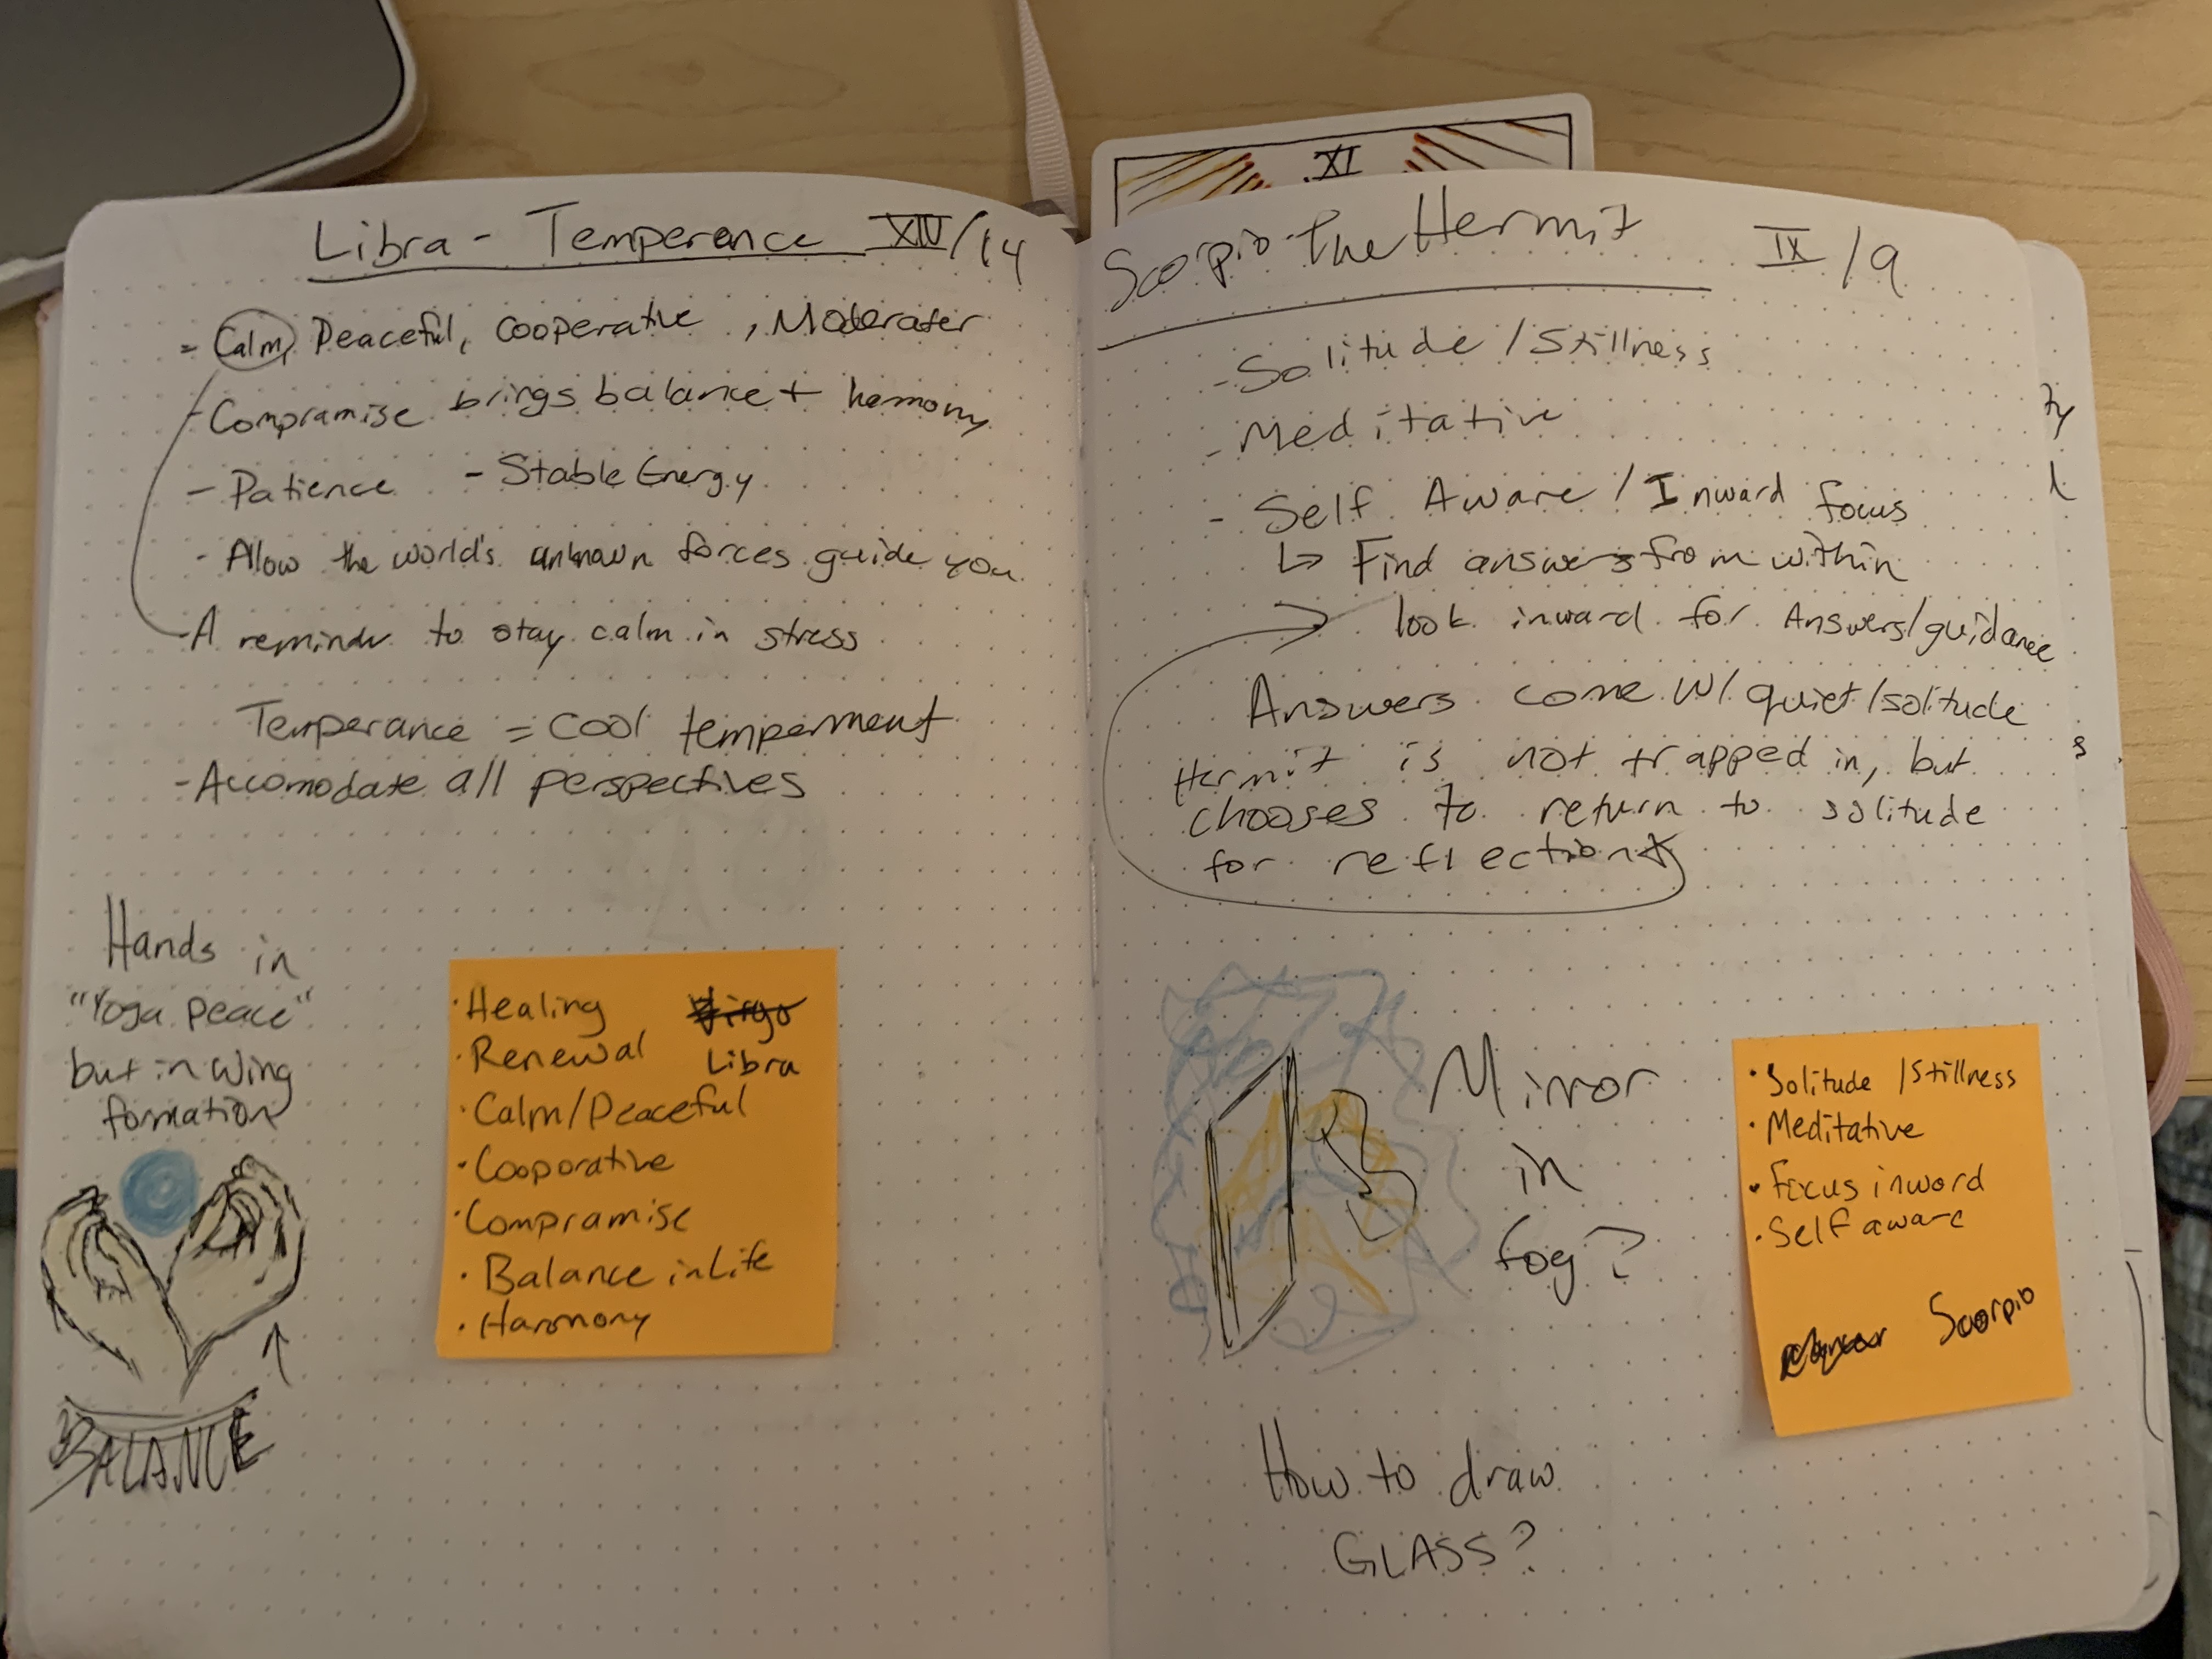 XI
Libra - Temperance XIV/14
- Calm, Peaceful, Cooperative, Moderater
- Compramise brings balance + harmony
- Patience - Stable Energy
- Allow the world's unknown forces guide you
- A reminder to stay calm in stress
Temperance = cool temperment
- Accomodate all perspectives
Hands in
"Yoga peace"
but in wing
formation
BALANCE
· Healing
Virgo
· Renewal
Libra
· Calm/Peaceful
· Cooporative
· Compramise
· Balance in Life
· Harmony
Scorpio - The Hermit IX/9
- Solitude / Stillness
- Meditative
- Self Aware / Inward focus
↳ Find answers from within
→ look inward for Answers/guidance
Answers come w/ quiet/solitude
Hermit is not trapped in, but
chooses to return to solitude
for reflection
Mirror
in
fog?
How to draw
GLASS?
· Solitude / Stillness
· Meditative
· Focus inword
· Self aware
Scorpio